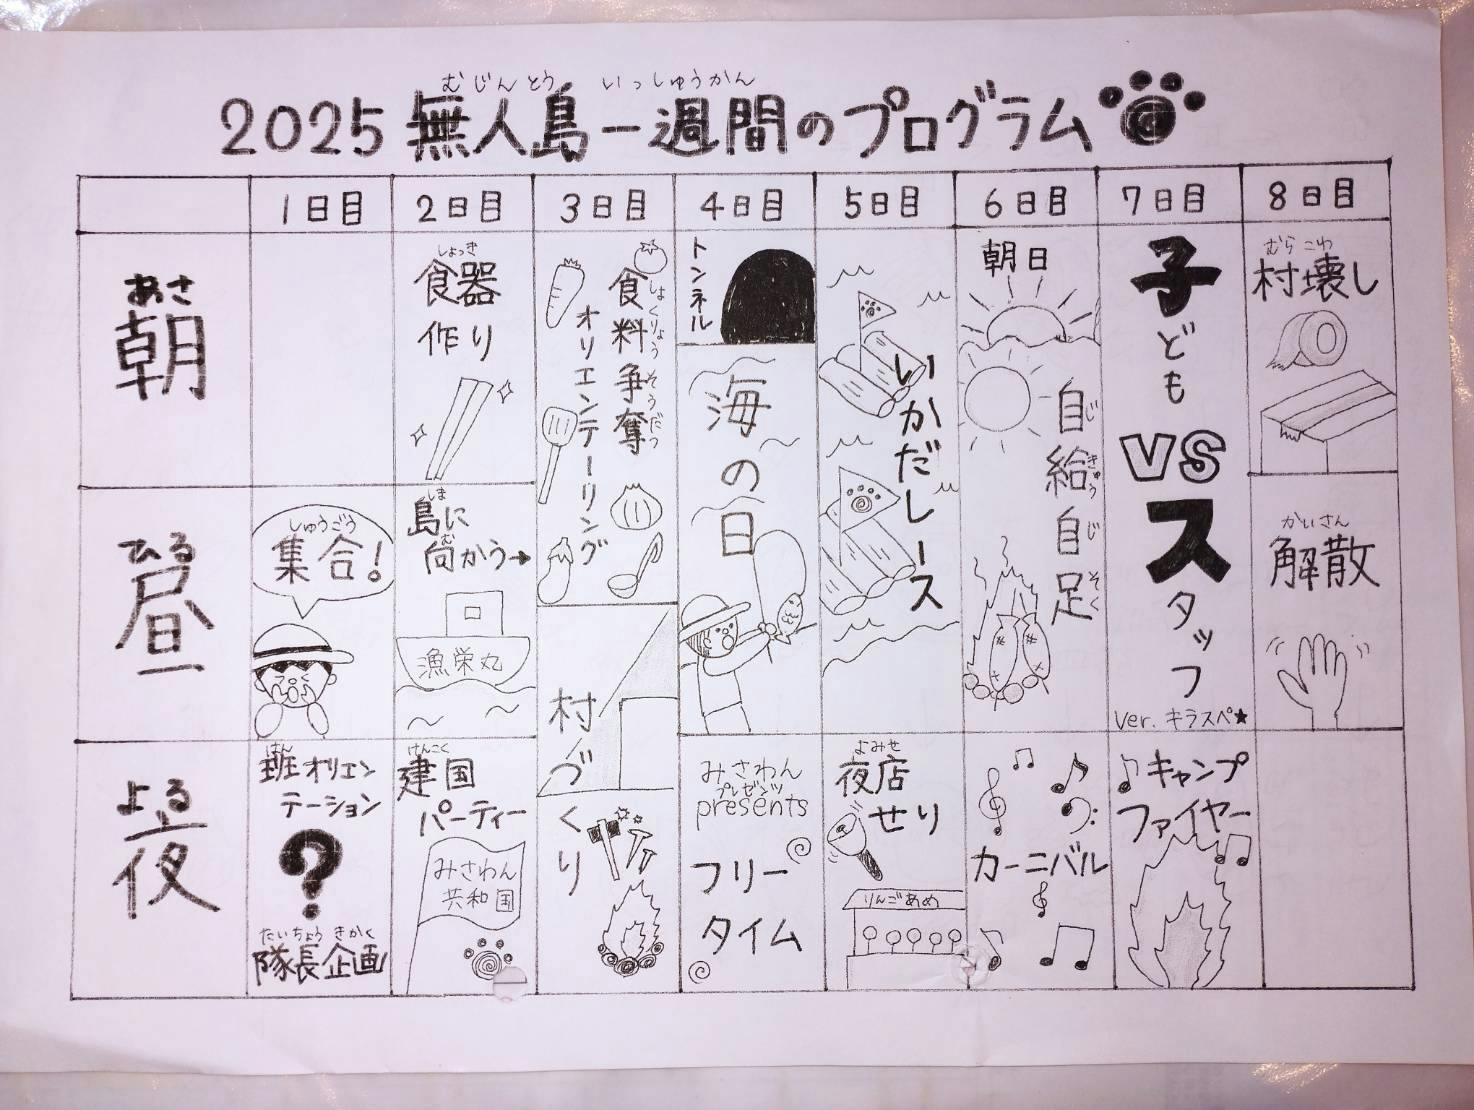 むじんとう いっしゅうかん
2025無人島一週間のプログラム
1日目 2日目 3日目 4日目 5日目 6日目 7日目 8日目
あさ
朝
しょっき
食器
作り
しょくりょうそうだつ
食料争奪
オリエンテーリング
トンネル
海の日
いかだレース
朝日
じきゅうじそく
自給自足
子ども
VS
スタッフ
Ver. キラスペ★
むらこわ
村壊し
ひる
昼
しゅうごう
集合!
しま
島に
む
向かう→
漁栄丸
村づくり
かいさん
解散
よる
夜
はん
班オリエン
テーション
?
たいちょうきかく
隊長企画
けんこく
建国
パーティー
みさわん
共和国
みさわん
プレゼンツ
presents
フリー
タイム
よみせ
夜店
せり
りんごあめ
カーニバル
キャンプ
ファイヤー